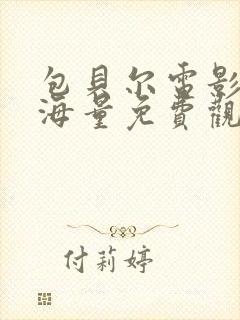 包貝尔電影
海量免費觀
付莉婷